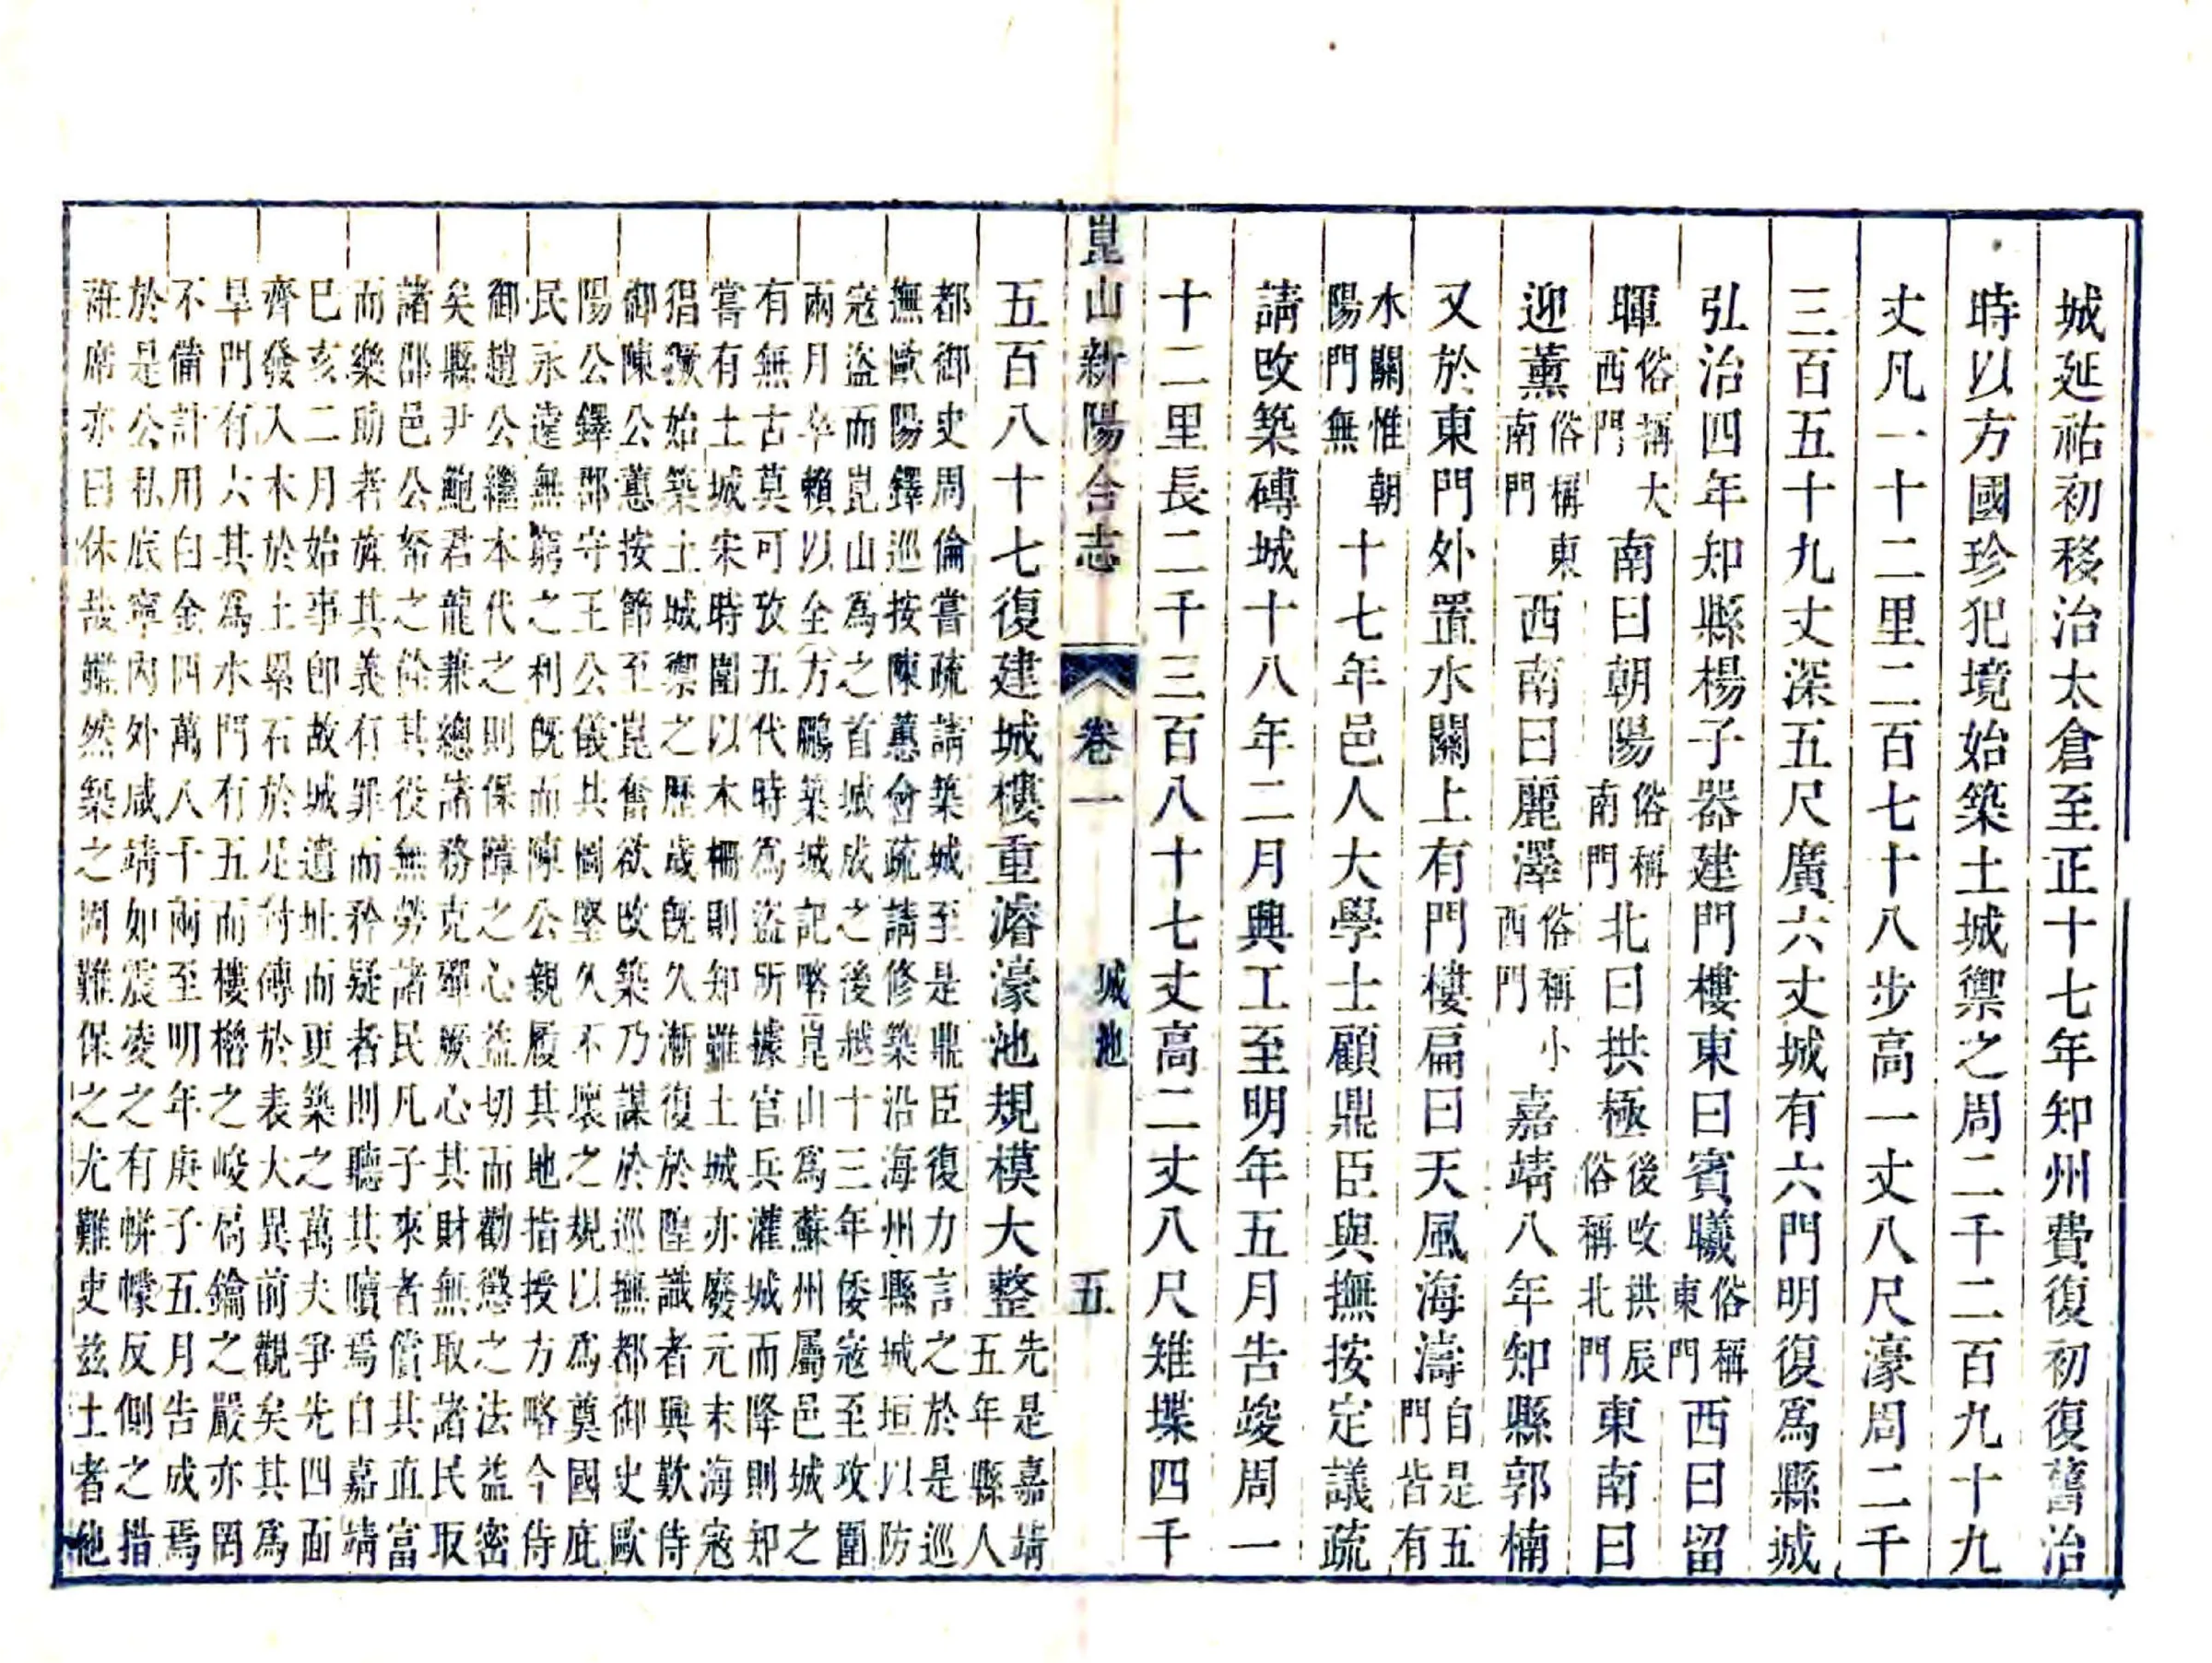 城延祐初移治太倉至正十七年知州費復初復舊治
時以方國珍犯境始築土城禦之周二千二百九十九
丈凡一十二里二百七十八步高一丈八尺濠周二千
三百五十九丈深五尺廣六丈城有六門明復爲縣城
弘治四年知縣楊子器建門樓東曰賓曦俗稱東門西曰留
暉俗稱大西門南曰朝陽俗稱南門北曰拱極後改拱辰俗稱北門東南曰
迎薰俗稱東南門西南曰麗澤俗稱小西門嘉靖八年知縣郭楠
又於東門外置水關上有門樓扁曰天風海濤自是五門皆有
水關惟朝陽門無十七年邑人大學士顧鼎臣與撫按定議疏
請改築磚城十八年二月興工至明年五月告竣周一
十二里長二千三百八十七丈高二丈八尺雉堞四千
崑山新陽合志 卷一 城池 五
五百八十七復建城樓重濬濠池規模大整先是嘉靖五年縣人
都御史周倫嘗疏請築城至是鼎臣復力言之於是巡
撫歐陽鐸巡按陳蕙會疏請修築沿海州縣城垣以防
寇盜而崑山爲之首城成之後越十三年倭寇至攻圍
兩月卒賴以全方鵬築城記略崑山爲蘇州屬邑城之
有無古莫可攷五代時爲盜所據官兵灌城而降則知
嘗有土城宋時圍以木柵則知雖土城亦廢元末海寇
猖獗始築土城禦之歷歲既久漸復於隍識者興歎侍
御陳公蕙按節至崑奮欲改築乃謀於巡撫都御史歐
陽公鐸郡守王公儀其圖堅久不壞之規以爲奠國庇
民永遠無窮之利既而陳公親履其地指授方略今侍
御趙公繼本代之則保障之心益切而勸懲之法益密
矣縣尹鮑君龍兼總諸務克殫厥心其財無取諸民取
諸郡邑公帑之餘其役無勞諸民凡子來者償其直富
而樂助者旌其義有罪而矜疑者則聽其贖焉自嘉靖
巳亥二月始事卽故城遺址而更築之萬夫爭先四面
齊發入木於土纍石於足付傅於表大異前觀矣其爲
旱門有六其爲水門有五而樓櫓之峻扃鑰之嚴亦罔
不備計用白金四萬八千兩至明年庚子五月告成焉
於是公私底寧內外咸靖如震凌之有帡幪反側之措
衽席亦曰休哉雖然築之固難保之尤難吏茲土者他